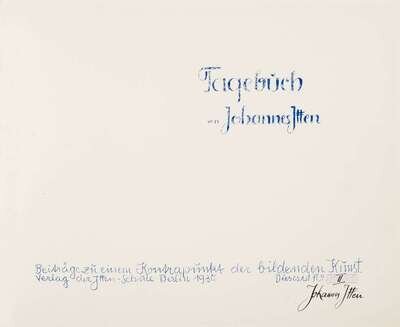 Tagebuch
von Johannes Itten
Beiträge zu einem Kontrapunkt der bildenden Kunst
Verlag der Itten-Schule Berlin 1930
Dieses ist No
Johannes Itten